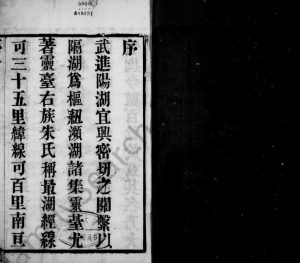 序
武進陽湖宜興密切之關繫以
隔湖爲樞紐瀕湖諸集靈臺尤
著靈臺右族朱氏稱最湖經綫
可三十五里緯線可百里南亘